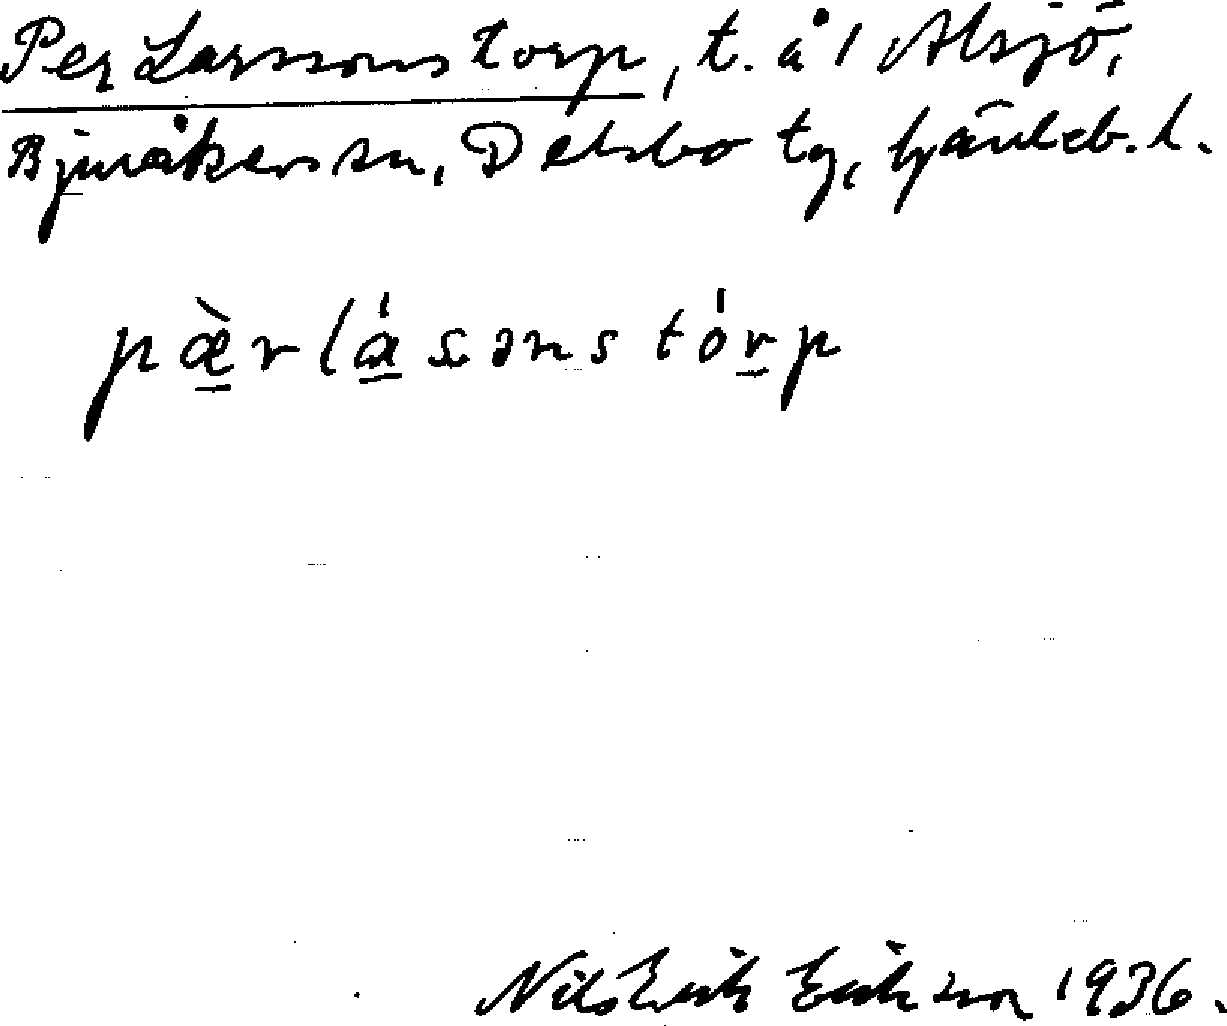 Per Larssons torp, t. å 1 Alsjö,
Bjuråkers sn, Delsbo tg, Gävleb. l.
pæ̀rlásɔns tórp
Nils Erik Eriksson 1936.